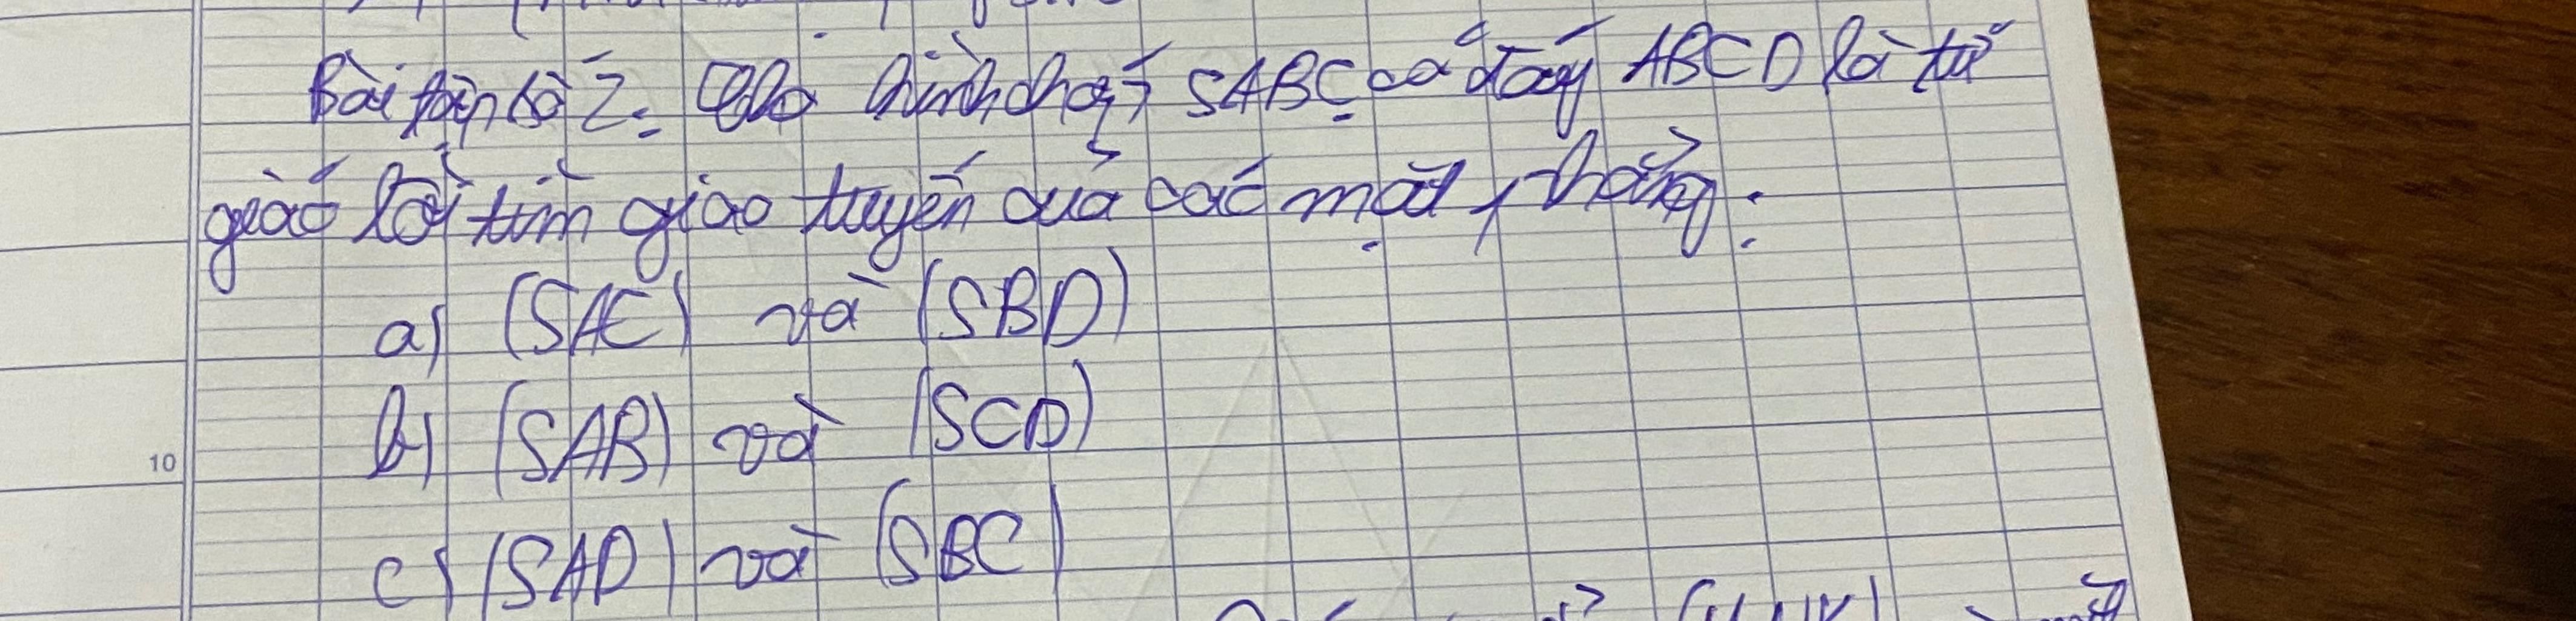 Bài toán số 2: Cho hình chóp SABC có đáy ABCD là tứ
giác lồi tìm giao tuyến của các mặt phẳng:
a) (SAC) và (SBD)
b) (SAB) và (SCD)
10
c) (SAD) và (SBC)